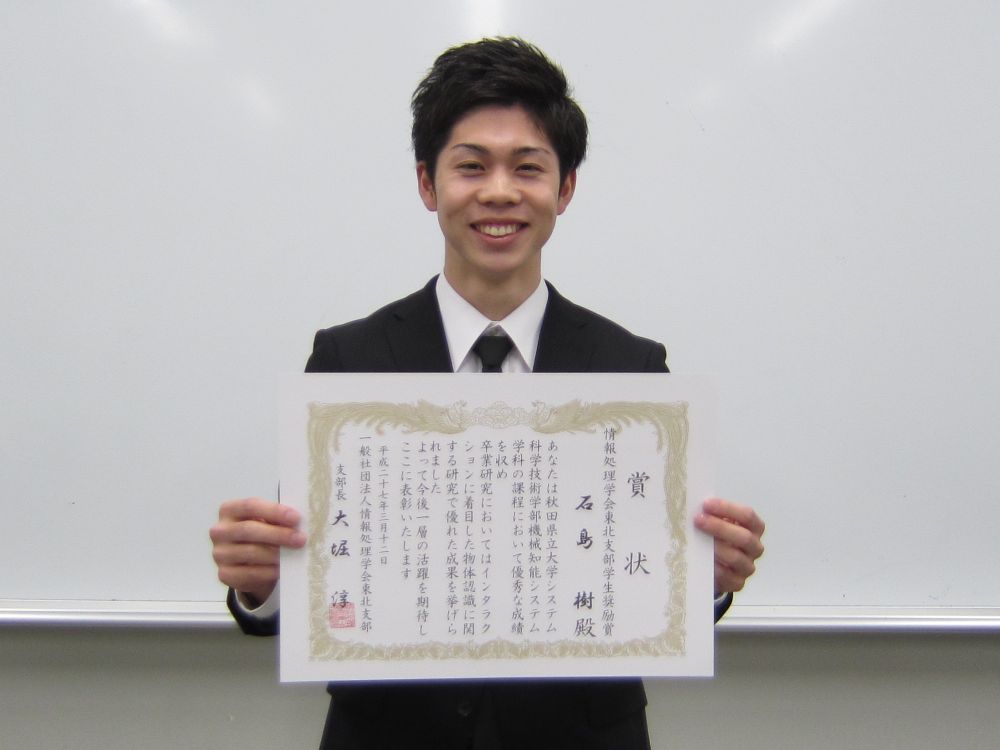 賞状
情報処理学会東北支部学生奨励賞
石島 樹殿
あなたは秋田県立大学システム
科学技術学部機械知能システム
学科の課程において優秀な成績
を収め
卒業研究においてはインタラク
ションに着目した物体認識に関
する研究で優れた成果を挙げら
れました
よって今後一層の活躍を期待し
ここに表彰いたします
平成二十七年三月十二日
一般社団法人情報処理学会東北支部
支部長 大堀 淳